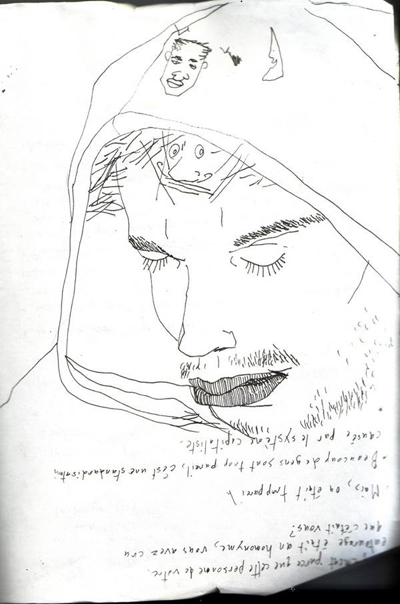 C'est parce que cette personne de votre
entourage était un homonyme, vous avez cru
que c'était vous?
- Mais, on était trop pareil
- Beaucoup de gens sont trop pareil, c'est une standardisation
causée par le système capitaliste.